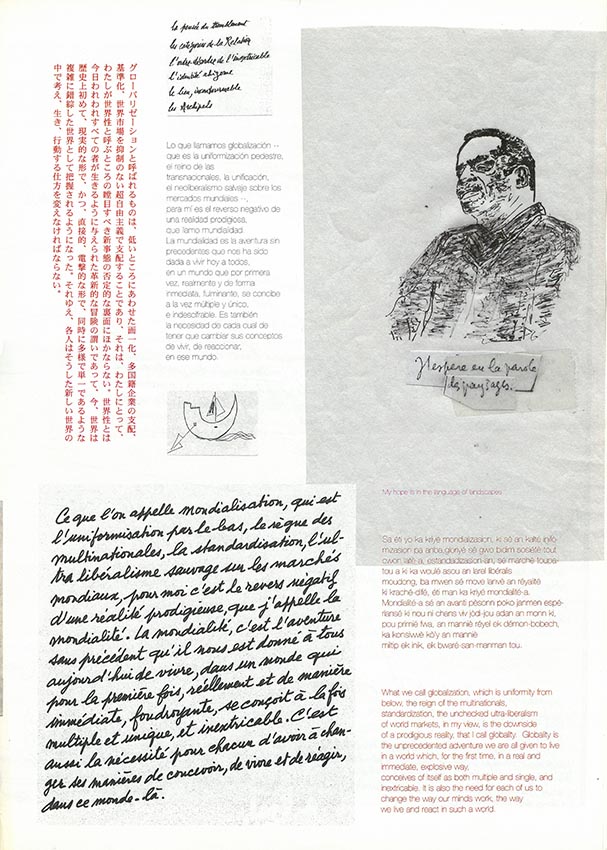 la pensée du tremblement
les catégories de la Relation
l'ordre-désordre de l'inextricable
l'identité rhizome
le lieu, incontournable
les Archipels
グローバリゼーションと呼ばれるものは、低いところにあわせた画一化、多国籍企業の支配、
基準化、世界市場を抑制のない超自由主義で支配することであり、それは、わたしにとって、
わたしが世界性と呼ぶところの瞠目すべき新事態の否定的な裏面にほかならない。世界性とは
今日われわれすべての者が生きるように与えられた革新的な冒険の謂いであって、今、世界は
歴史上初めて、現実的な形で、かつ、直接的、電撃的な形で、同時に多様で単一であるような
複雑に錯綜した世界として把握されるようになった。それゆえ、各人はそうした新しい世界の
中で考え、生き、行動する仕方を変えなければならない。
Lo que llamamos globalización --
que es la uniformización pedestre,
el reino de las
transnacionales, la unificación,
el neoliberalismo salvaje sobre los
mercados mundiales --,
para mí es el reverso negativo de
una realidad prodigiosa,
que llamo mundialidad.
La mundialidad es la aventura sin
precedentes que nos ha sido
dada a vivir hoy a todos,
en un mundo que por primera
vez, realmente y de forma
inmediata, fulminante, se concibe
a la vez múltiple y único,
e indescifrable. Es también
la necesidad de cada cual de
tener que cambiar sus conceptos
de vivir, de reaccionar,
en ese mundo.
J'espère en la parole
des paysages.
My hope is in the language of landscapes
Ce que l'on appelle Mondialisation, qui est
l'uniformisation par le bas, le règne des
multinationales, la standardisation, l'ul-
tra libéralisme sauvage sur les marchés
mondiaux, pour moi c'est le revers négatif
d'une réalité prodigieuse, que j'appelle la
mondialité. La mondialité, c'est l'aventure
sans précédent qu'il nous est donné à tous
aujourd'hui de vivre, dans un monde qui
pour la première fois, réellement et de manière
immédiate, foudroyante, se conçoit à la fois
multiple et unique, et inextricable. C'est
aussi la nécessité pour chacun d'avoir à chan-
ger ses manières de concevoir, de vivre et de réagir,
dans ce monde-là.
Sa éti yo ka kriyé mondializasion, ki sé an kalté inifo-
mizasion pa anba,
cwon laté a, estandadizasion-an, sé marché toupa-
tou a ki ka woulé asou an laral libéralis
moudong, ba mwen sé move lanvè an réyalité
ki kraché difé, éti man ka kriyé mondialité-a.
Mondialité-a sé an avanti pèsonn poko janmen espé-
riansé ki nou ni chans viv jòdi-jou adan an monn ki,
pou primié fwa, an manniè réyel ek démon-bobech,
ka konsiwvè kò'y an manniè
miltip ek inik, ek bwaré-san-manman tou.
What we call globalization, which is uniformity from
below, the reign of the multinationals,
standardization, the unchecked ultra-liberalism
of world markets, in my view, is the downside
of a prodigious reality, that I call globality. Globality is
the unprecedented adventure we are all given to live
in a world which, for the first time, in a real and
immediate, explosive way,
conceives of itself as both multiple and single, and
inextricable. It is also the need for each of us to
change the way our minds work, the way
we live and react in such a world.